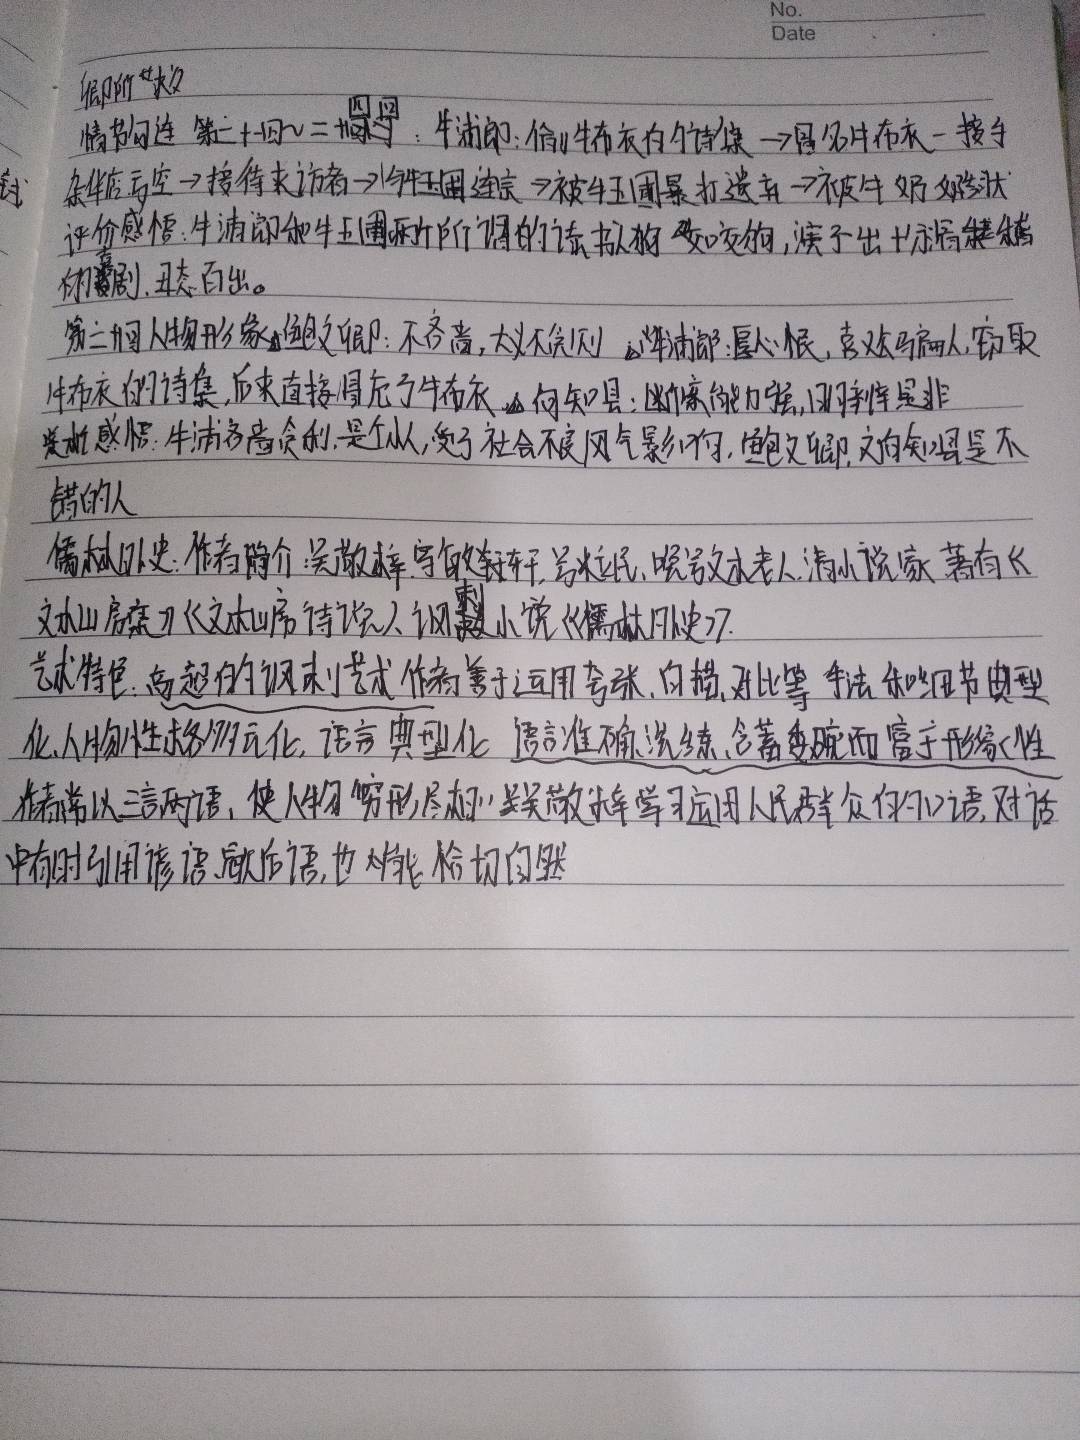 No.
Date
情节勾连 第二十回~二十四回：牛浦郎：偷牛布衣的诗集→冒名牛布衣→接手
杂华店亏空→接待来访者→与牛玉圃连宗→被牛玉圃暴打遗弃→被牛奶奶告状
评价感悟：牛浦郎和牛玉圃两个所谓的读书人狗咬狗，演了出
的喜剧，丑态百出。
第二十四回人物形象 鲍文卿：不吝啬，大义不贪财 牛浦郎：心狠，喜欢骗人，窃取
牛布衣的诗集，后来直接冒充了牛布衣 向知县：断案能力强，明辨是非
感悟：牛浦吝啬贪利，是个小人，受了社会不良风气影响，鲍文卿，向知县是不
错的人
儒林外史：作者简介：吴敬梓，字敏轩，号粒民，晚号文木老人，清小说家 著有《
文木山房集》《文木山房诗说》，讽刺小说《儒林外史》.
艺术特色：高超的讽刺艺术 作者善于运用夸张、白描、对比等手法 和细节典型
化，人物性格多元化，语言典型化 语言准确、洗练、含蓄委婉而富于形象性
作者常以三言两语，使人物"穷形尽相" 吴敬梓学习运用人民群众的口语，对话
中有时引用谚语、歇后语，也能恰切自然